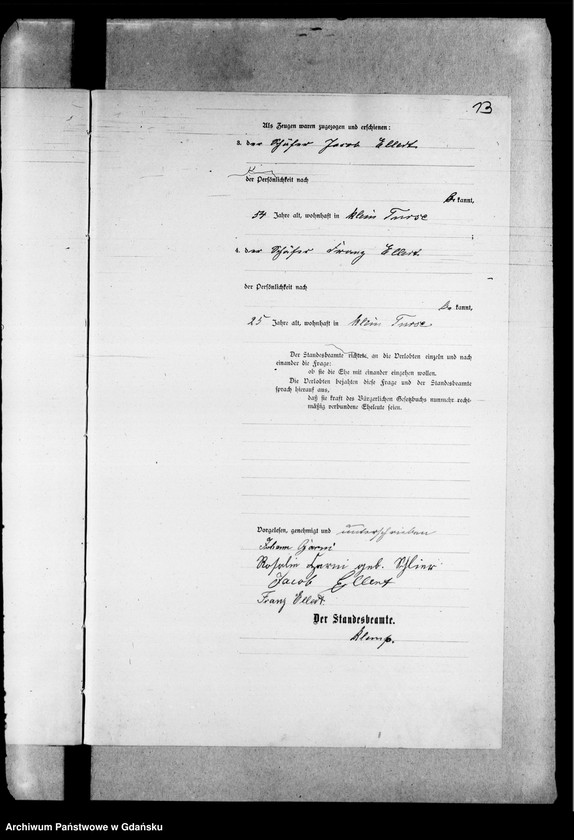 13
Als Zeugen waren zugezogen und erschienen:
3. der Schäfer Jacob Ellert
der Persönlichkeit nach
be kannt,
54 Jahre alt, wohnhaft in Klein Turse
;
4. der Schäfer Franz Ellert
der Persönlichkeit nach
be kannt,
25 Jahre alt, wohnhaft in Klein Turse
Der Standesbeamte richtete, an die Verlobten einzeln und nach
einander die Frage:
ob sie die Ehe mit einander eingehen wollen.
Die Verlobten bejahten diese Frage und der Standesbeamte
sprach hierauf aus,
daß sie kraft des Bürgerlichen Gesetzbuchs nunmehr recht-
mäßig verbundene Eheleute seien.
Vorgelesen, genehmigt und unterschrieben
Johann
Rosalie geb. Schlier
Jacob Ellert
Franz Ellert
Der Standesbeamte.
Klemp.
Archiwum Państwowe w Gdańsku